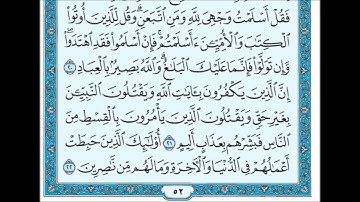 فَقُلْ أَسْلَمْتُ وَجْهِيَ لِلَّهِ وَمَنِ ٱتَّبَعَنِ ۗ وَقُل لِّلَّذِينَ أُوتُوا۟
ٱلْكِتَـٰبَ وَٱلْأُمِّيِّـۧنَ ءَأَسْلَمْتُمْ ۚ فَإِنْ أَسْلَمُوا۟ فَقَدِ ٱهْتَدَوا۟ ۖ
وَّإِن تَوَلَّوْا۟ فَإِنَّمَا عَلَيْكَ ٱلْبَلَـٰغُ ۗ وَٱللَّهُ بَصِيرٌۢ بِٱلْعِبَادِ ٢٠
إِنَّ ٱلَّذِينَ يَكْفُرُونَ بِـَٔايَـٰتِ ٱللَّهِ وَيَقْتُلُونَ ٱلنَّبِيِّـۧنَ
بِغَيْرِ حَقٍّ وَيَقْتُلُونَ ٱلَّذِينَ يَأْمُرُونَ بِٱلْقِسْطِ مِنَ
ٱلنَّاسِ فَبَشِّرْهُم بِعَذَابٍ أَلِيمٍ ٢١ أُو۟لَـٰٓئِكَ ٱلَّذِينَ حَبِطَتْ
أَعْمَـٰلُهُمْ فِى ٱلدُّنْيَا وَٱلْـَٔاخِرَةِ وَمَا لَهُم مِّن نَّـٰصِرِينَ ٢٢
٥٢